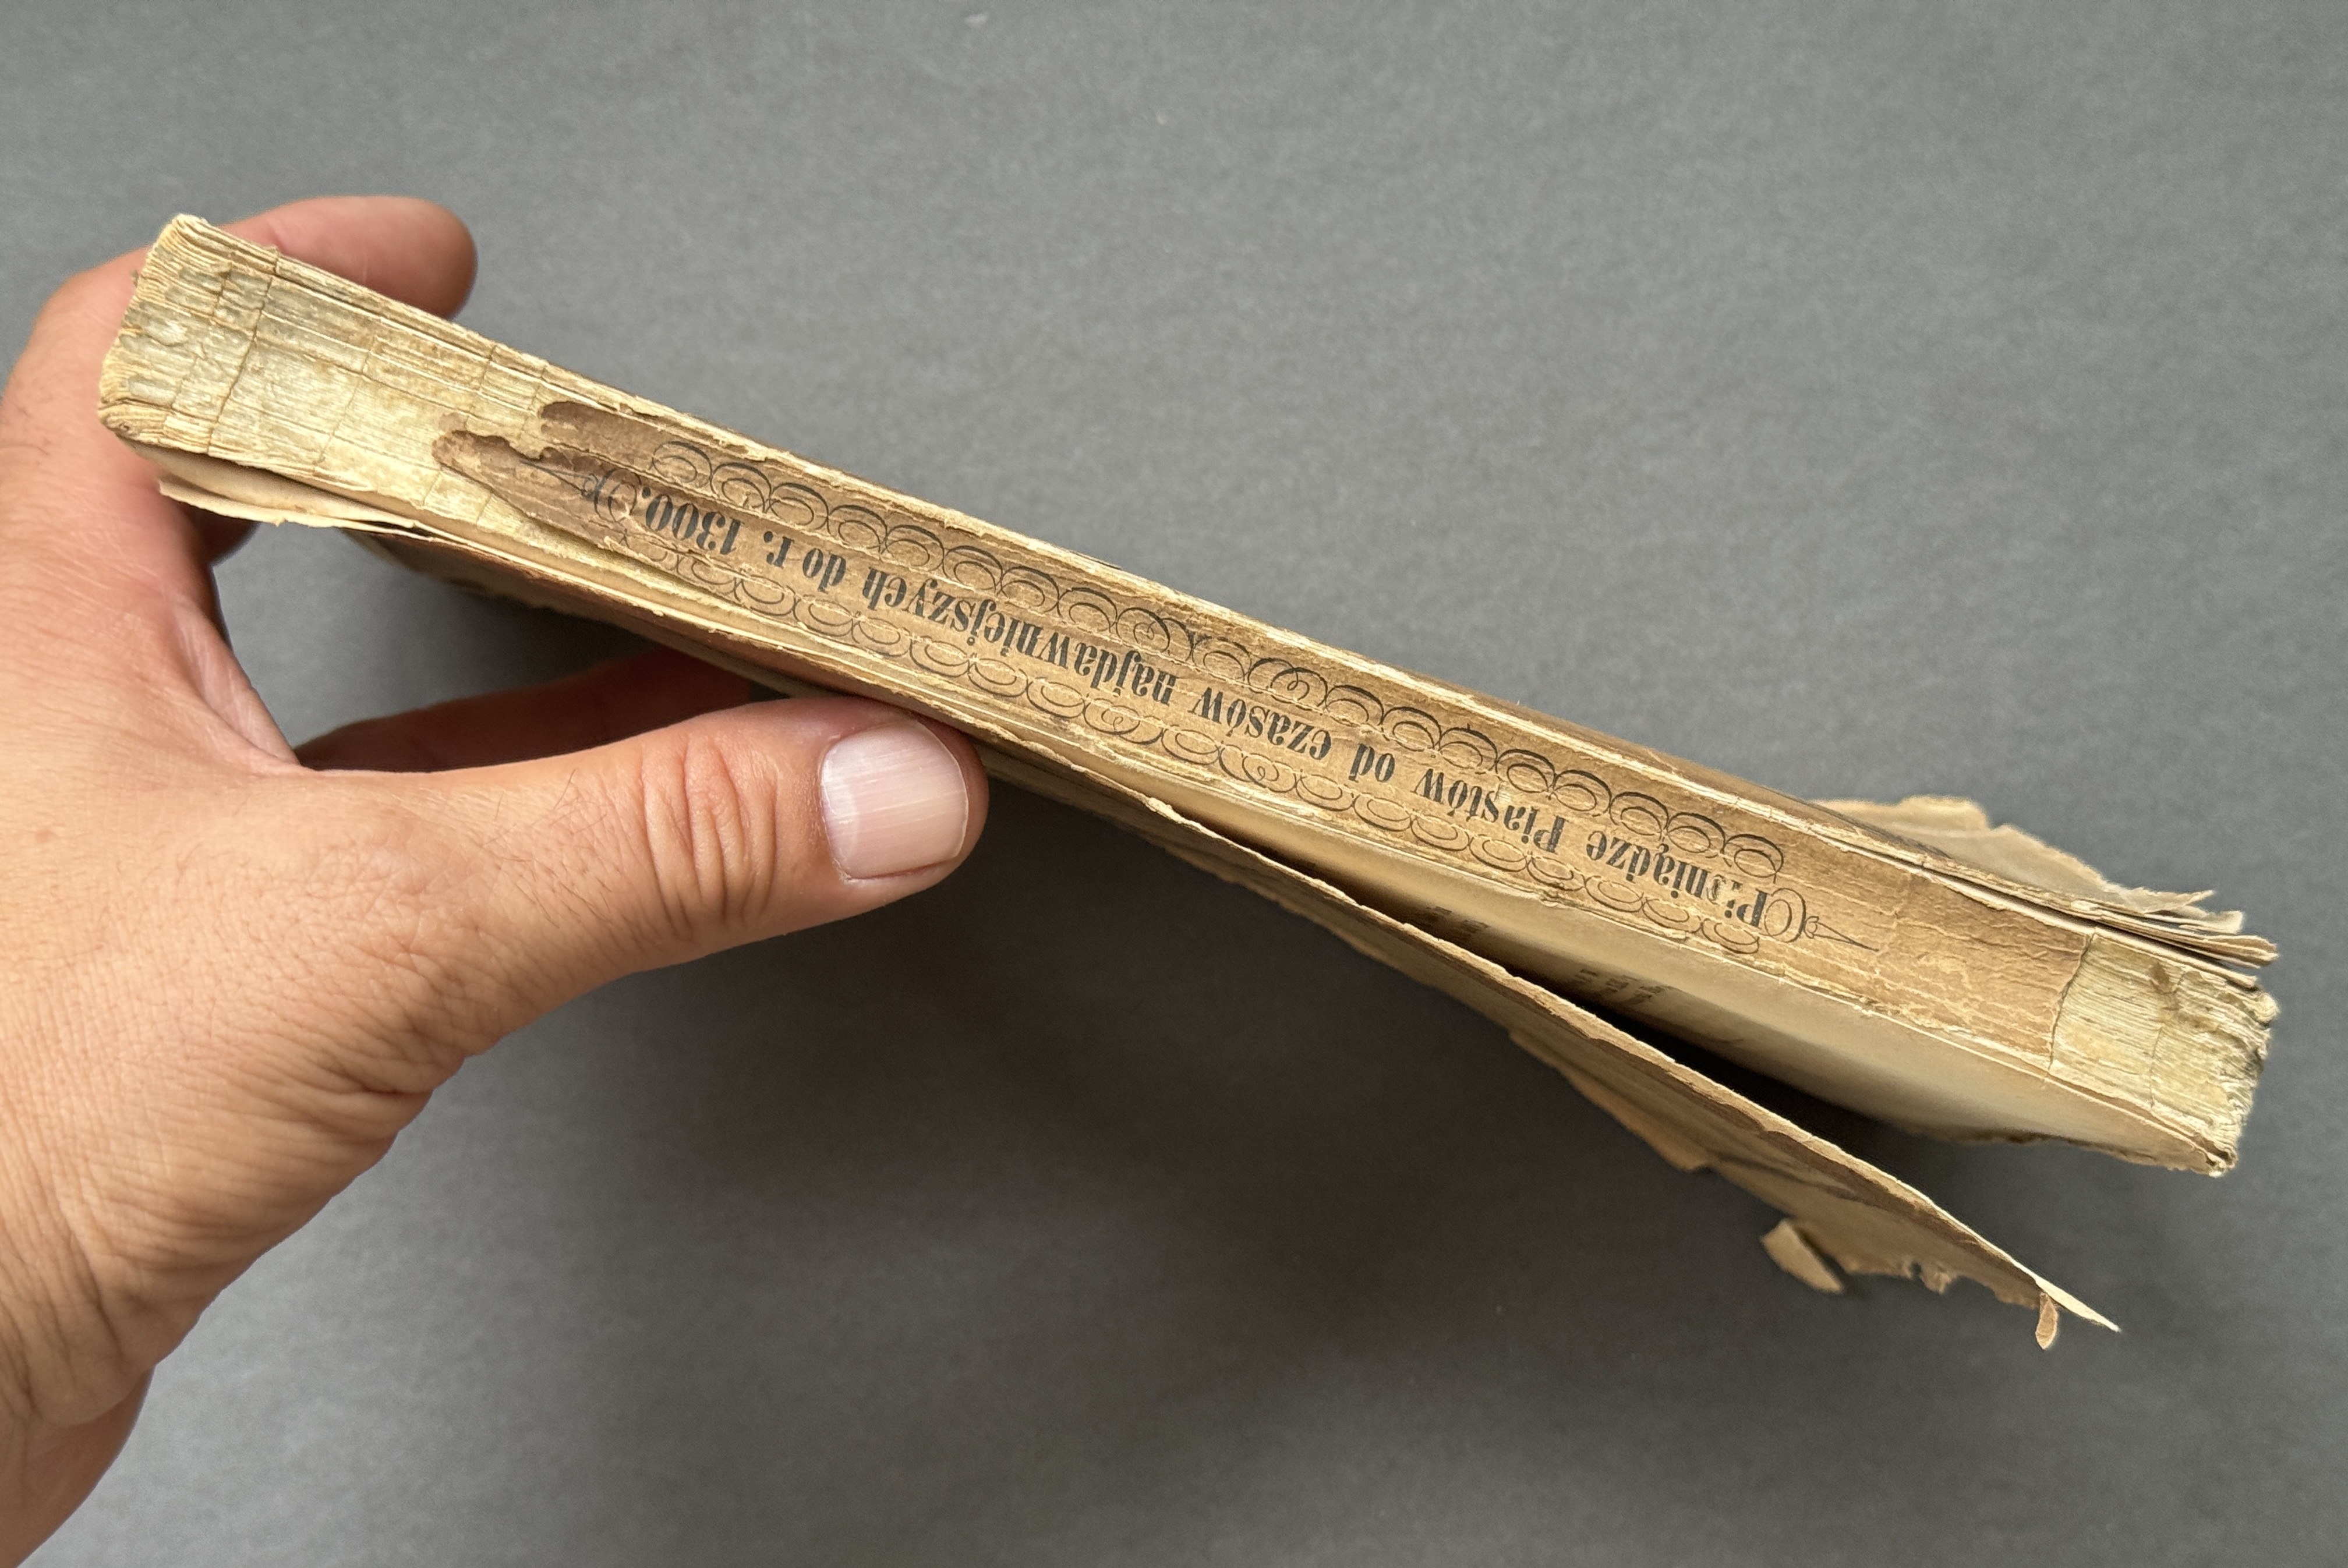 Pieniądze Piastów od czasów najdawniejszych do r. 1300.